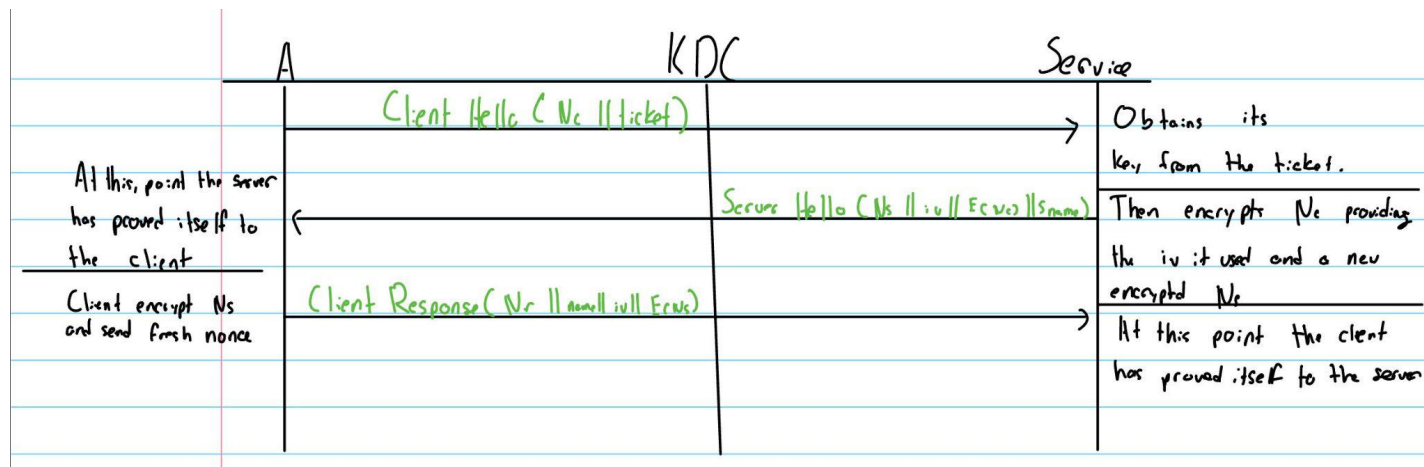 A KDC Service
Client Hello ( Nc || ticket )
Obtains its
key from the ticket.
At this, point the server
has proved itself to
the client
Server Hello ( Ns || iv || E(Nc) || Sname )
Then encrypts Nc providing
the iv it used and a new
encryptd
Client encrypt Ns
and send fresh nonce
Client Response ( Nr || name || iv || E(Ns)
At this point the client
has proved itself to the server